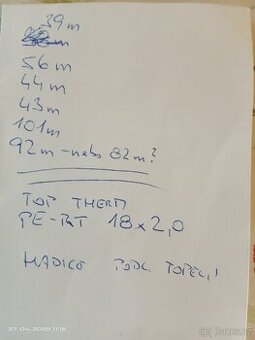 39m
56m
44m
43m
101m
92m - nebo 82m?
TOP THERM
PE-RT 18x2,0
HADICE PODL. TOPENÍ
27.04.2025 11:15